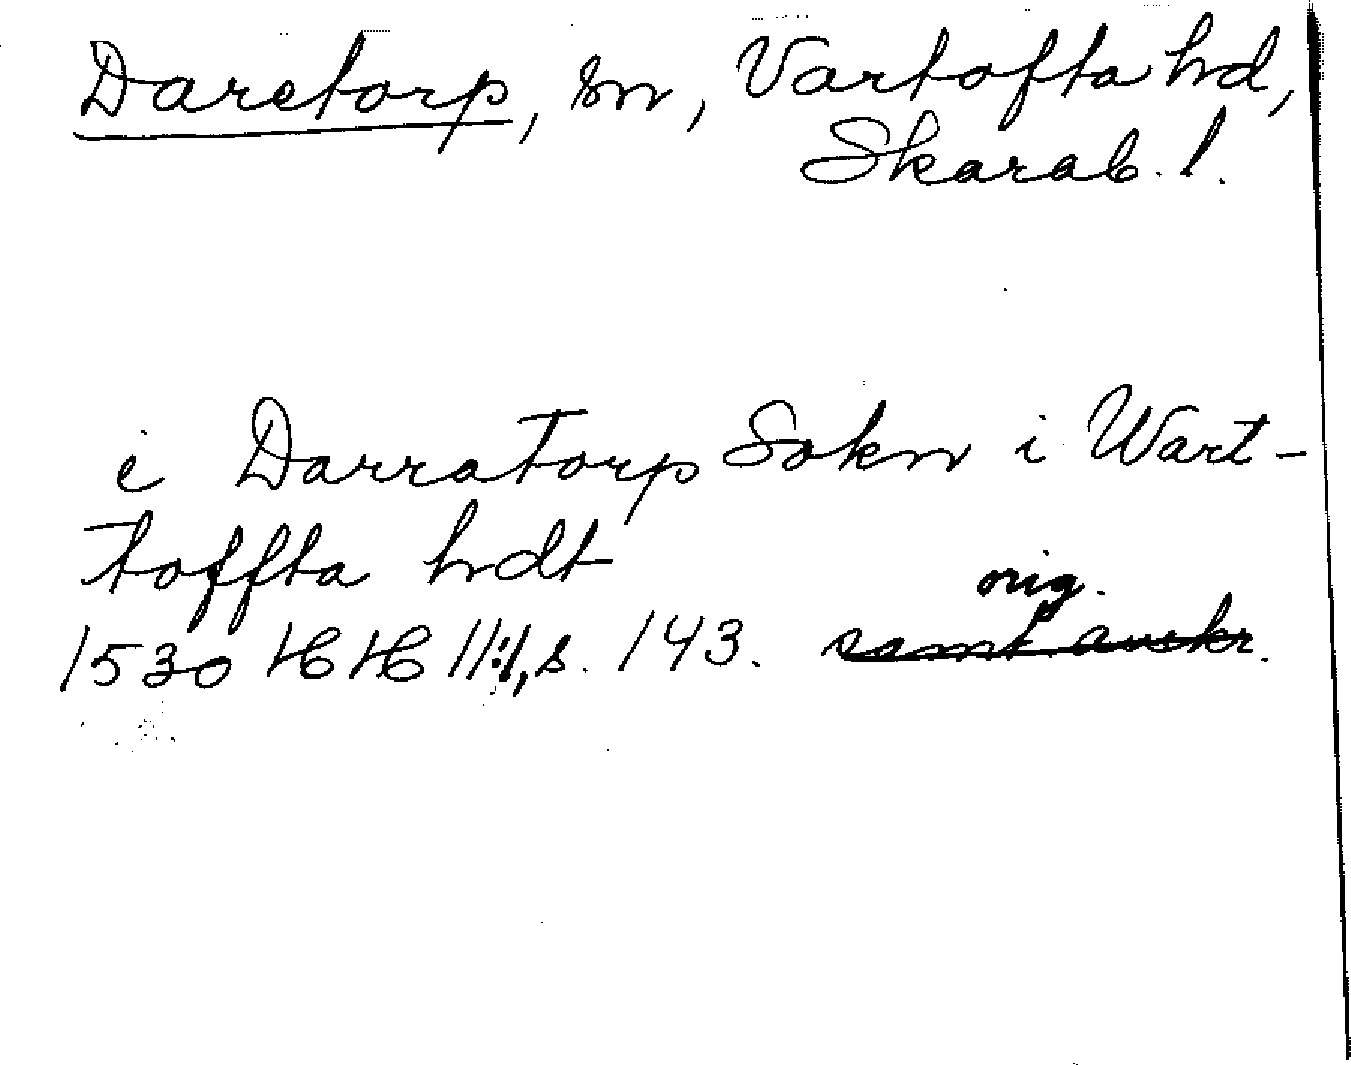 Daretorp, sn, Vartofta hd,
Skarab. l.
i Darratorp Sokn i Wart-
toffta hdt
orig.
1530 HH 11:1, s. 143. samt. avskr.